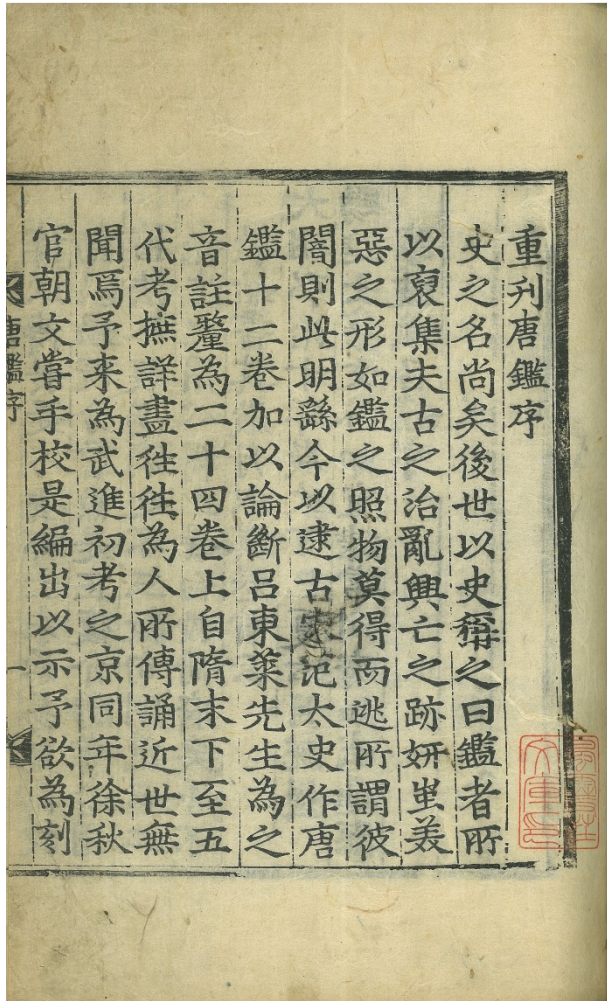 重刋唐鑑序
史之名尚矣後世以史稱之曰鑑者所
以裒集夫古之治亂興亡之跡妍蚩美
惡之形如鑑之照物莫得而逃所謂彼
闇則此明繇今以逮古 范太史作唐
鑑十二卷加以論斷吕東萊先生為之
音註釐為二十四卷上自隋末下至五
代考摭詳盡徃徃為人所傳誦近世無
聞焉予来為武進初考之京同年徐秋
官朝文嘗手校是編出以示予欲為刻
唐鑑序
一